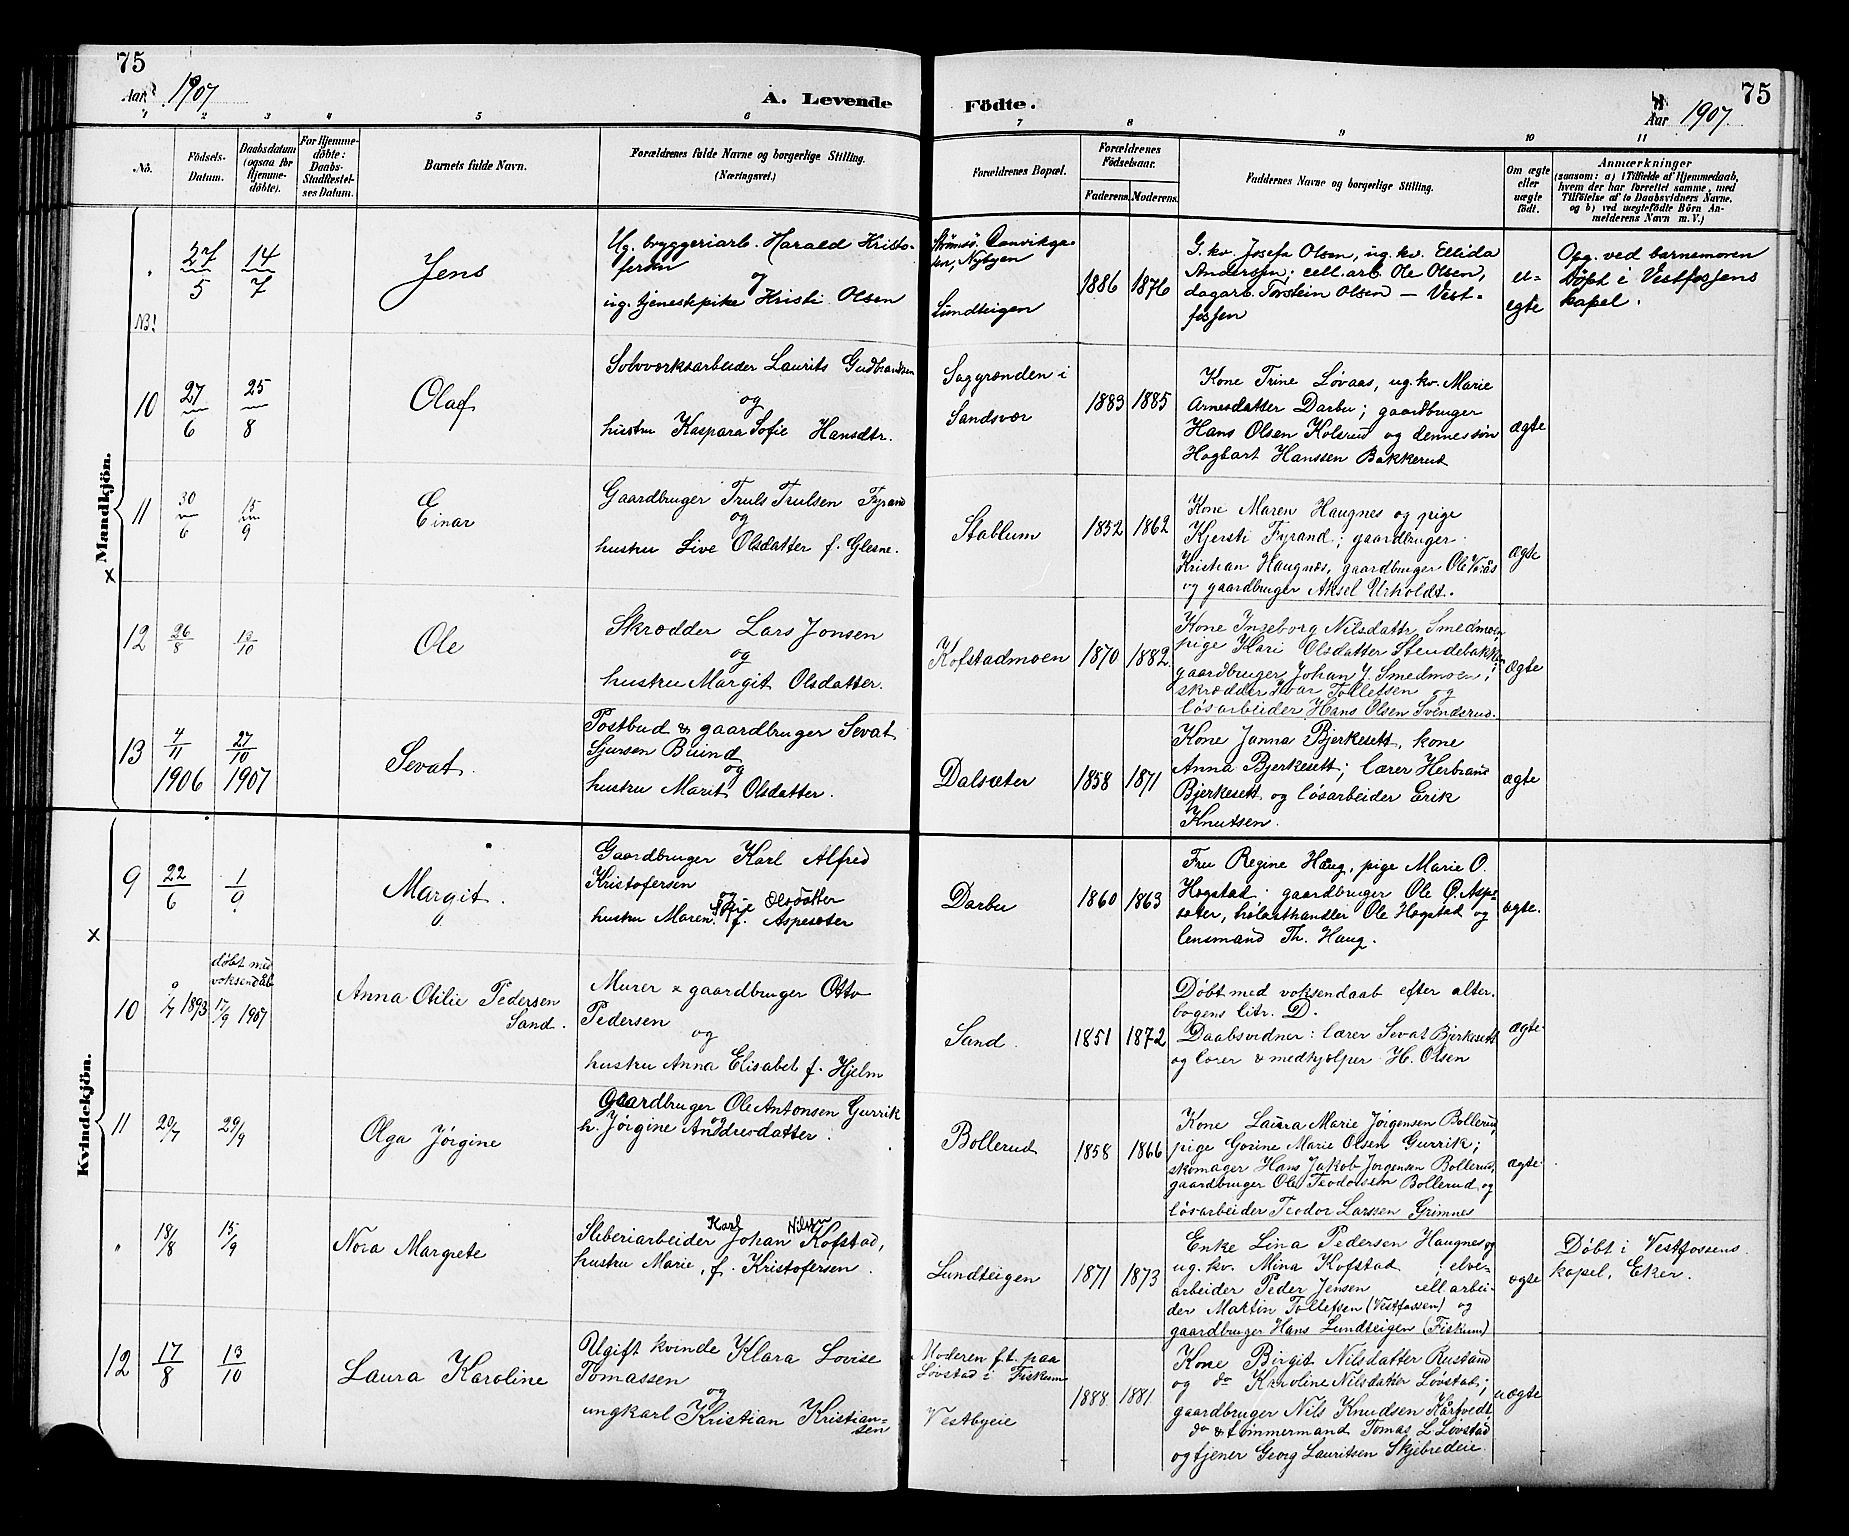 75
75
Aar 1907
A. Levende
Födte.
Aar 1907
1 2 3 4 5 6 7 8 9 10 11
No.
Födsels-
Datum.
Daabsdatum
(ogsaa for
Hjemme-
döbte).
For Hjemme-
döbte:
Daabs-
Stadfæstel-
ses Datum.
Barnets fulde Navn.
Forældrenes fulde Navne og borgerlige Stilling.
(Næringsvei.)
Forældrenes Bopæl.
Forældrenes
Födselsaar.
Faderens. Moderens.
Faddernes Navne og borgerlige Stilling.
Om ægte
eller
uægte
født.
Anmærkninger
(saasom: a) i Tilfælde af Hjemmedaab,
hvem der har forrettet samme, med
Tilföielse af to Daabsvidners Navne.
og b) ved uægtefödte Börn An-
melderens Navn m. V.)
Mandkjön.
"
NB!
27
5
14
7
Jens
Ug. bryggeriarb. Harald Kristo-
fersen
og
ug. tjenestepike Kristi Olsen
Strømsö. Danvikga-
ten, Nybyen
Lundteigen
1886 1876
G. kv. Josefa Olsen, ug. kv. Ellida
Andersen; cell. arb. Ole Olsen,
dagarb. Torstein Olsen — Vest-
fossen
u-
egte
Opg. ved barnemoren
Döpt i Vestfossens
kapel.
10
27
6
25
8
Olaf
Solvverksarbeider Laurits Gudbrandsen
og
hustru Kaspara Sofie Hansdtr.
Saggrænden i
Sandsvær
1883 1885
Kone Trine Løvaas, ug. kv. Marie
Arnesdatter Darbu; gaardbruger
Hans Olsen Kolsrud og dennes søn
Hagbart Hanssen Bakkerud
ægte
11
30
6
15
9
Einar
Gaardbruger Truls Trulsen Fyrand
og
hustru Live Olsdatter f. Glesne.
Stablum
1852 1862
Kone Maren Haugnes og pige
Kjersti Fyrand; gaardbruger
Kristian Haugnæs, gaardbruger Ole Vrås
og gaardbruger Aksel Urholdt.
ægte
12
26
8
13
10
Ole
Skrædder Lars Jonsen
og
hustru Margit Olsdatter.
Kofstadmoen
1870 1882
Kone Ingeborg Nilsdattr. Smedmoen
pige Kari Olsdatter Stendebakken
gaardbruger Johan J. Smedmoen;
skrædder Ivar Tolletsen og
løsarbeider Hans Olsen Svendsrud.
ægte
13
4
11
1906
27
10
1907
Sevat.
Postbud & gaardbruger Sevat
Sjursen Buind
og
hustru Marit Olsdatter.
Dalsæter
1858 1871
Kone Janna Bjerkesett, kone
Anna Bjerkesett; lærer Herbrand
Bjerkesett og løsarbeider Erik
Knutsen.
ægte
Kvindekjön.
9
22
6
1
9
Margit.
Gaardbruger Karl Alfred
Kristofersen
og
hustru Maren Sofie Olsdatter
f. Aspesæter
Darbu
1860 1863
Fru Regine Haug, pige Marie O.
Hogstad; gaardbruger Ole O. Aspe-
sæter, trælasthandler Ole Hogstad og
lensmand Th. Haug.
ægte.
10
1893
døbt med
voksendåb
15/9 1907
Anna Otilie Pedersen
Sand.
Murer & gaardbruger Otto
Pedersen
og
hustru Anna Elisabet f. Hjelm
Sand.
1851 1872
Døbt med voksendaab efter alter-
bogens litr. D.
Daabsvidner: lærer Sevat Bjerkesett
og lærer & medhjælper H. Olsen
ægte
11
20/7
29/9
Olga Jörgine
Gaardbruger Ole Antonsen Gurrik
og
h. Jörgine Andresdatter.
Bollerud
1858 1866
Kone Laura Marie Jörgensen Bollerud,
pige Gorine Marie Olsen Gurrik;
skomager Hans Jakob Jorgensen Bollerud,
gaardbruger Ole Teodorsen Bollerud og
løsarbeider Teodor Larssen Grimnes
ægte
"
18/8
15/9
Nora Margrete
Sliberiarbeider Karl Johan Nilsen Kofstad,
hustru Marie, f. Kristofersen.
Lundteigen
1871 1873
Enke Lina Pedersen Haugnes og
ug. kv. Mina Kofstad; elve-
arbeider Peder Jensen cell. arbei-
der Martin Tolletsen (Vestfossen) og
gaardbruger Hans Lundteigen (Fiskum)
ægte
Döbt i Vestfossens
kapel, Eker.
12
17
8
13
10
Laura Karoline
Ugift kvinde Klara Lovise
Tomassen
og
ungkarl Kristian Kristian-
sen
Moderen f.t. paa
Løvstad i Fiskum
Vestbyeie
1888 1881
Kone Birgit Nilsdatter Rustand
og do Karoline Nilsdatter Løvstad;
gaardbruger Nils Knudsen Kårtvedt,
do & tömmermand Tomas L Løvstad
og tjener Georg Lauritsen Skjebredeie.
uægte